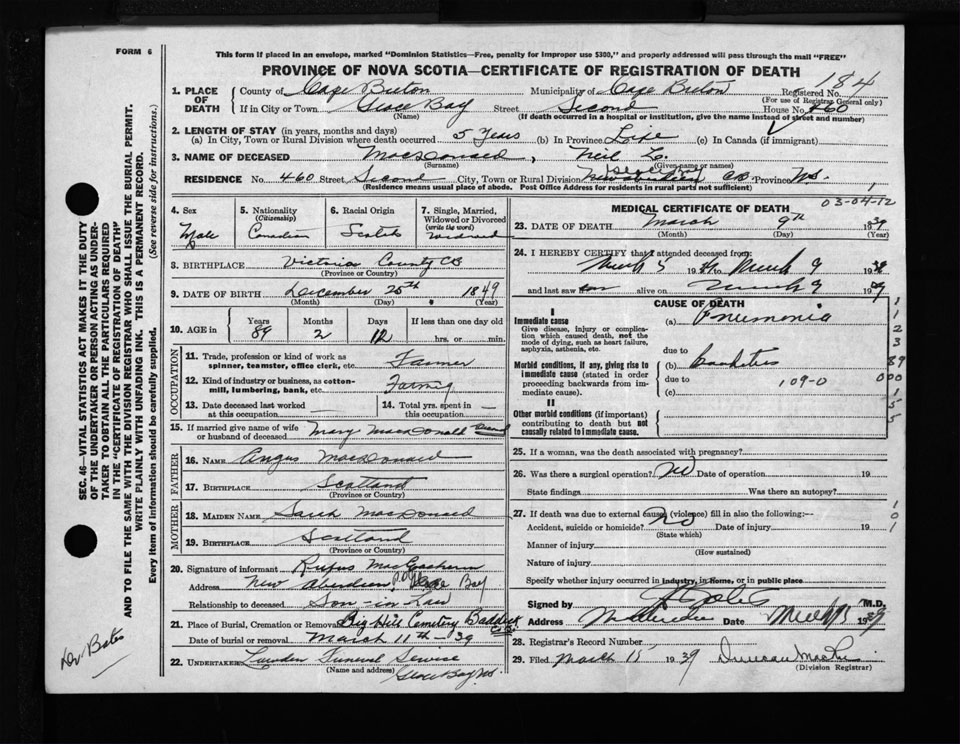 FORM 6
This form if placed in an envelope, marked "Dominion Statistics—Free, penalty for improper use $300," and properly addressed will pass through the mail "FREE"
PROVINCE OF NOVA SCOTIA—CERTIFICATE OF REGISTRATION OF DEATH
184
1. PLACE OF DEATH
County of Cape Breton Municipality of Cape Breton Registered No.
(For use of Registrar General only)
If in City or Town Glace Bay Street Second House No. 460
(Name) (If death occurred in a hospital or institution, give the name instead of street and number)
2. LENGTH OF STAY (in years, months and days)
(a) In City, Town or Rural Division where death occurred 5 Years (b) In Province Life (c) In Canada (if immigrant)
3. NAME OF DECEASED MacDonald, Neil L.
(Surname) (Given name or names)
RESIDENCE No. 460 Street Second City, Town or Rural Division New Aberdeen CB Province N.S.
(Residence means usual place of abode. Post Office Address for residents in rural parts not sufficient)
4. Sex
Male
5. Nationality (Citizenship)
Canadian
6. Racial Origin
Scotch
7. Single, Married, Widowed or Divorced (write the word)
Widowed
8. BIRTHPLACE Victoria County CB
(Province or Country)
9. DATE OF BIRTH December 25th 1849
(Month) (Day) (Year)
10. AGE in
Years Months Days If less than one day old
89 2 12 hrs. or min.
OCCUPATION
11. Trade, profession or kind of work as spinner, teamster, office clerk, etc. Farmer
12. Kind of industry or business, as cotton-mill, lumbering, bank, etc. Farming
13. Date deceased last worked at this occupation —
14. Total yrs. spent in this occupation —
15. If married give name of wife or husband of deceased Mary MacDonald
FATHER
16. NAME Angus MacDonald
17. BIRTHPLACE Scotland
(Province or Country)
MOTHER
18. MAIDEN NAME Sarah MacDonald
19. BIRTHPLACE Scotland
(Province or Country)
20. Signature of informant Rufus MacEachern
Address New Aberdeen, Glace Bay
Relationship to deceased Son-in Law
21. Place of Burial, Cremation or Removal Big Hill Cemetery Baddeck
Date of burial or removal March 11th - 39
22. UNDERTAKER Funeral Service
(Name and address) Glace Bay N.S.
MEDICAL CERTIFICATE OF DEATH
03-04-12
23. DATE OF DEATH March 9th 1939
(Month) (Day) (Year)
24. I HEREBY CERTIFY that I attended deceased from:
March 5 19 to March 9 1939
and last saw alive on March 9 1939
CAUSE OF DEATH
I
Immediate cause
Give disease, injury or complication which caused death, not the mode of dying, such as heart failure, asphyxia, asthenia, etc.
(a) Pneumonia
due to
Morbid conditions, if any, giving rise to immediate cause (stated in order proceeding backwards from immediate cause).
(b)
due to 109-0
(c)
II
Other morbid conditions (if important) contributing to death but not causally related to immediate cause.
25. If a woman, was the death associated with pregnancy?
26. Was there a surgical operation? No Date of operation 19
State findings Was there an autopsy?
27. If death was due to external causes (violence) fill in also the following:—
Accident, suicide or homicide? No Date of injury 19
(State which)
Manner of injury
(How sustained)
Nature of injury
Specify whether injury occurred in industry, in home, or in public place
Signed by M.D.
Address Date March 1939
28. Registrar's Record Number
29. Filed March 15 1939 Duncan
(Division Registrar)
SEC. 46—VITAL STATISTICS ACT MAKES IT THE DUTY
OF THE UNDERTAKER OR PERSON ACTING AS UNDER-
TAKER TO OBTAIN ALL THE PARTICULARS REQUIRED
IN THE "CERTIFICATE OF REGISTRATION OF DEATH"
AND TO FILE THE SAME WITH THE DIVISION REGISTRAR WHO SHALL ISSUE THE BURIAL PERMIT.
WRITE PLAINLY WITH UNFADING INK. THIS IS A PERMANENT RECORD.
Every item of information should be carefully supplied. (See reverse side for instructions.)
Dr Bates